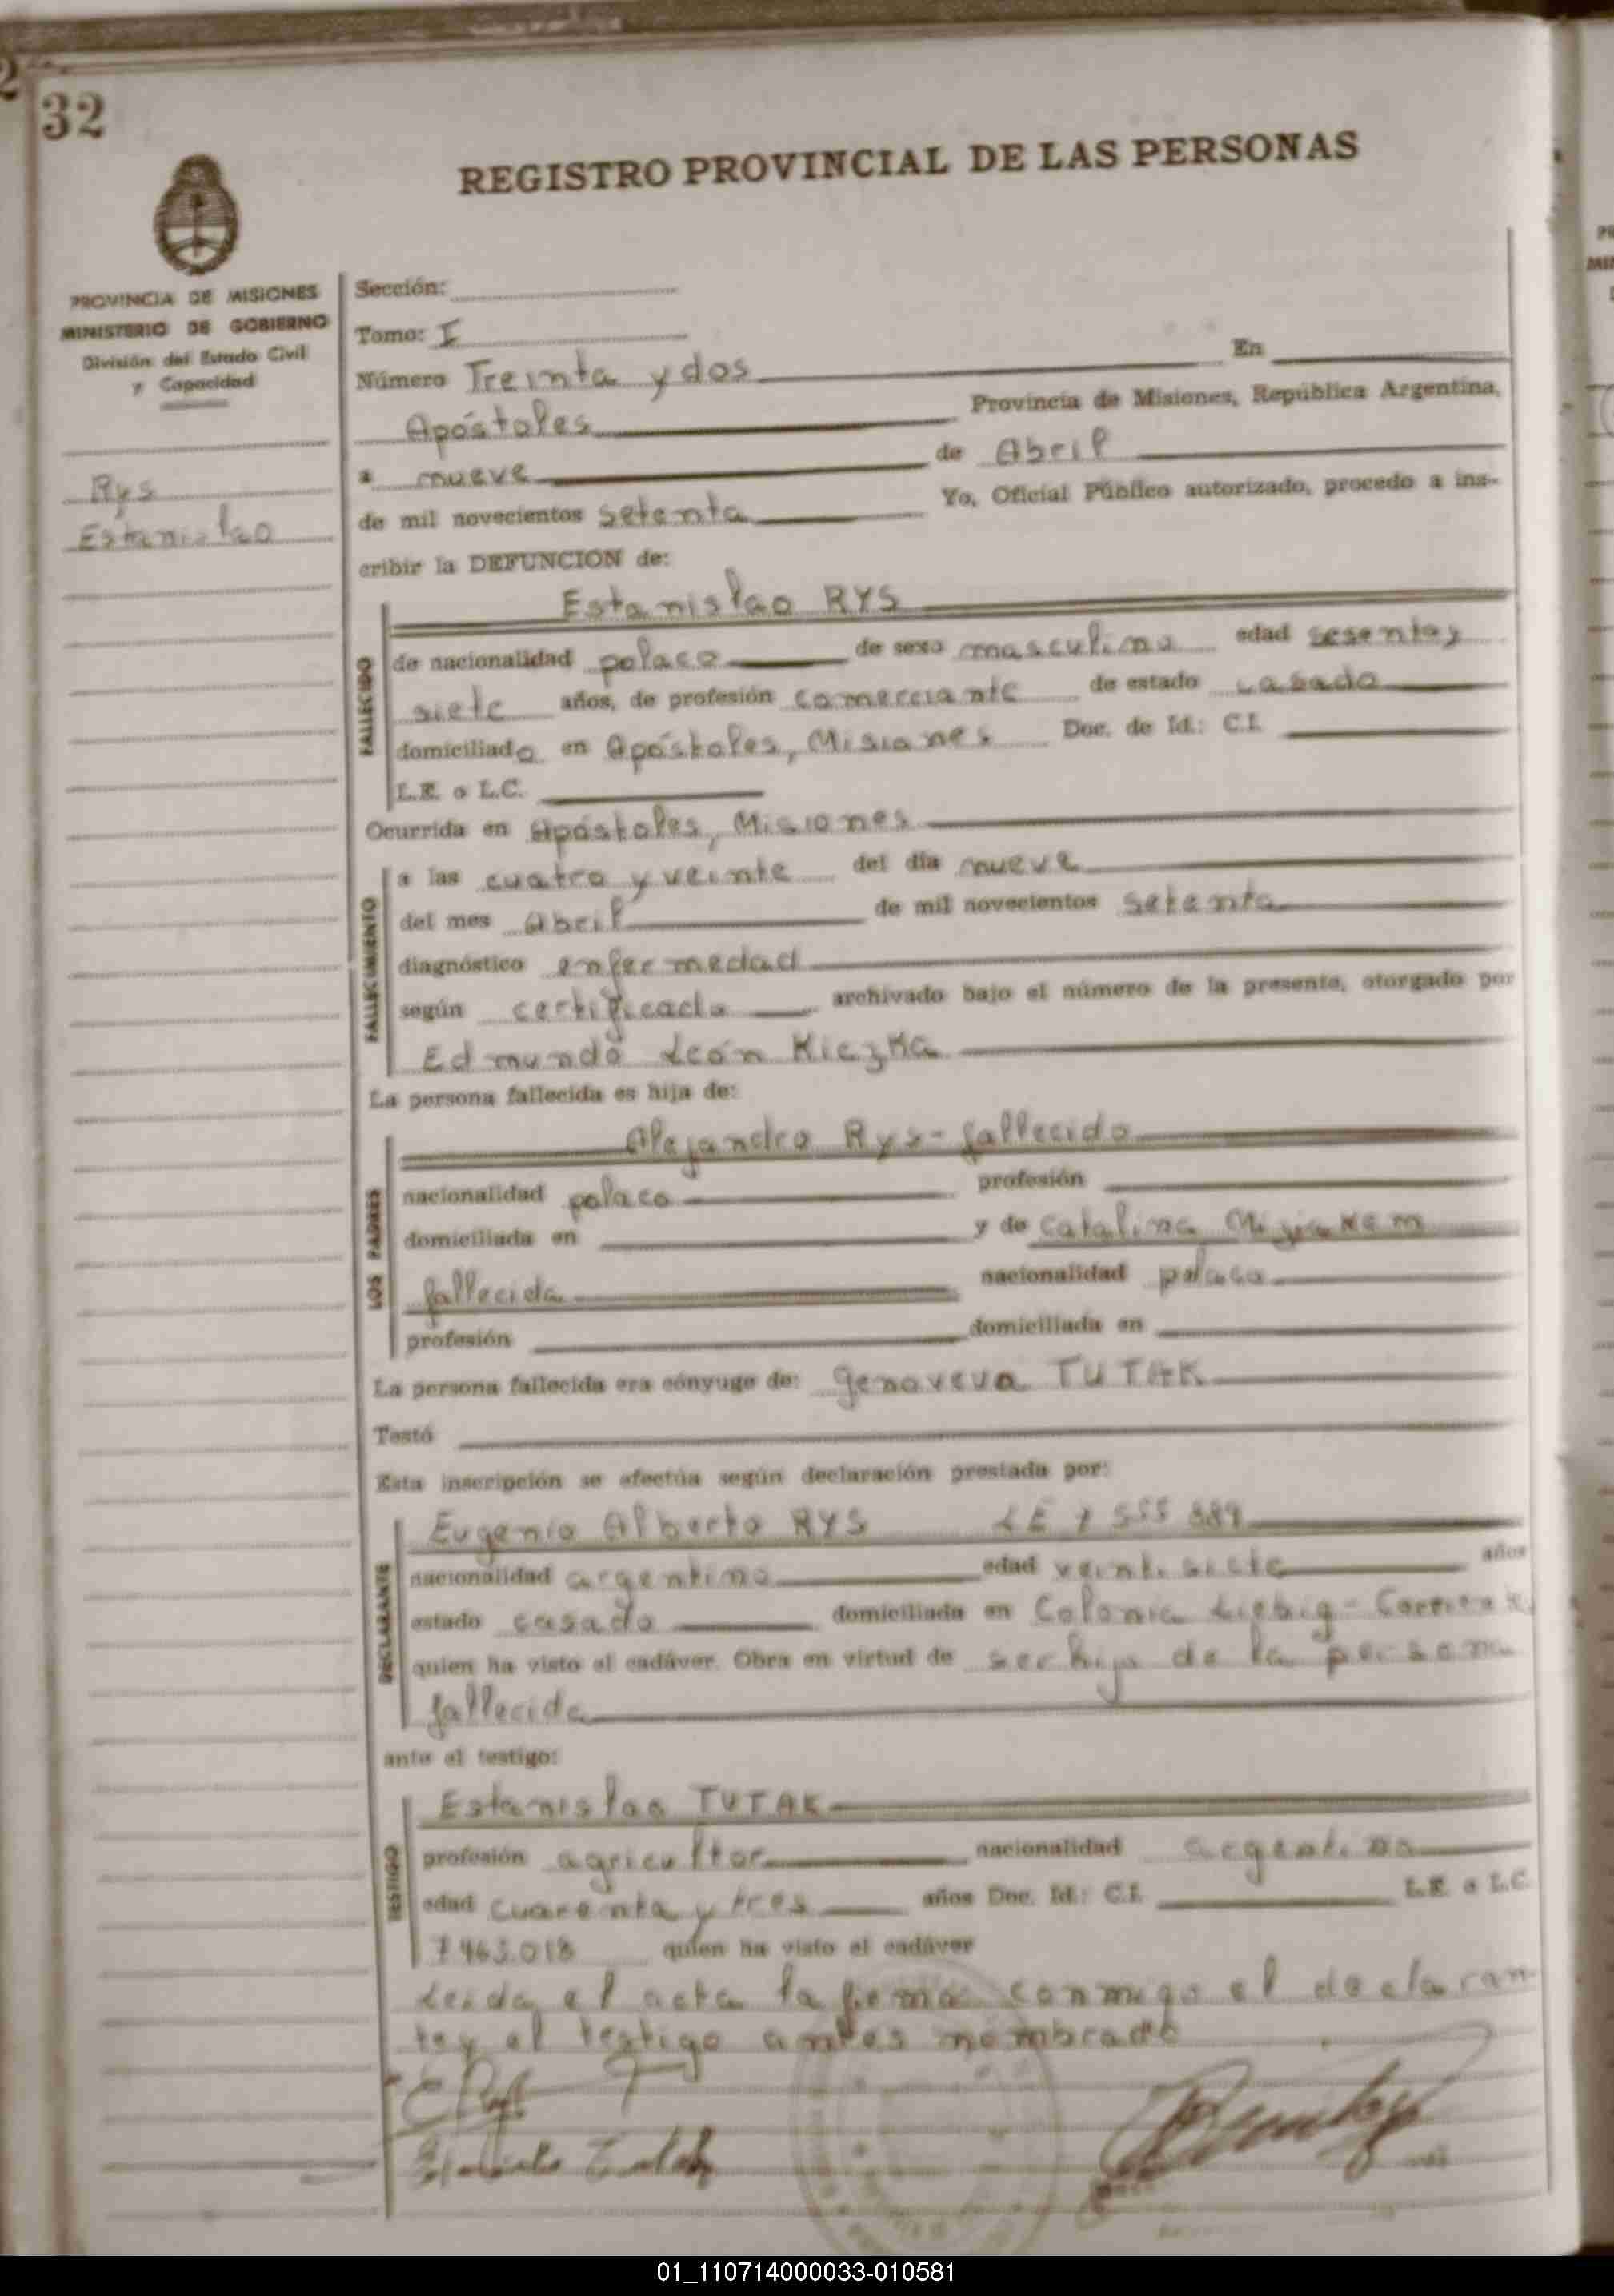 32
REGISTRO PROVINCIAL DE LAS PERSONAS
PROVINCIA DE MISIONES
MINISTERIO DE GOBIERNO
División del Estado Civil
y Capacidad
Rys
Estanislao
Sección:
Tomo: I
Número Treinta y dos En
Apóstoles Provincia de Misiones, República Argentina,
a nueve de Abril
de mil novecientos setenta Yo, Oficial Público autorizado, procedo a ins-
cribir la DEFUNCION de:
Estanislao RYS
FALLECIDO
de nacionalidad polaco de sexo masculino edad sesenta y
siete años, de profesión comerciante de estado casado
domiciliado en Apóstoles, Misiones Doc. de Id.: C.I.
L.E. o L.C.
Ocurrida en Apóstoles, Misiones
FALLECIMIENTO
a las cuatro y veinte del día nueve
del mes Abril de mil novecientos setenta
diagnóstico enfermedad
según certificado archivado bajo el número de la presente, otorgado por
Edmundo León Kiczka
La persona fallecida es hija de:
LOS PADRES
Alejandro Rys - fallecido
nacionalidad polaco profesión
domiciliada en y de Catalina
fallecida nacionalidad polaca
profesión domiciliada en
La persona fallecida era cónyuge de: Genoveva TUTAK
Testó
Esta inscripción se efectúa según declaración prestada por:
DECLARANTE
Eugenio Alberto RYS LE
nacionalidad argentino edad veintisiete años
estado casado domiciliada en Colonia Liebig - Corrientes
quien ha visto el cadáver. Obra en virtud de ser hijo de la persona
fallecida
ante el testigo:
TESTIGO
Estanislao TUTAK
profesión agricultor nacionalidad argentino
edad cuarenta y tres años Doc. Id.: C.I. L.E. o L.C.
7463.018 quien ha visto el cadáver
Leida el acta la firma conmigo el declaran
te y el testigo antes nombrado
01_110714000033-010581